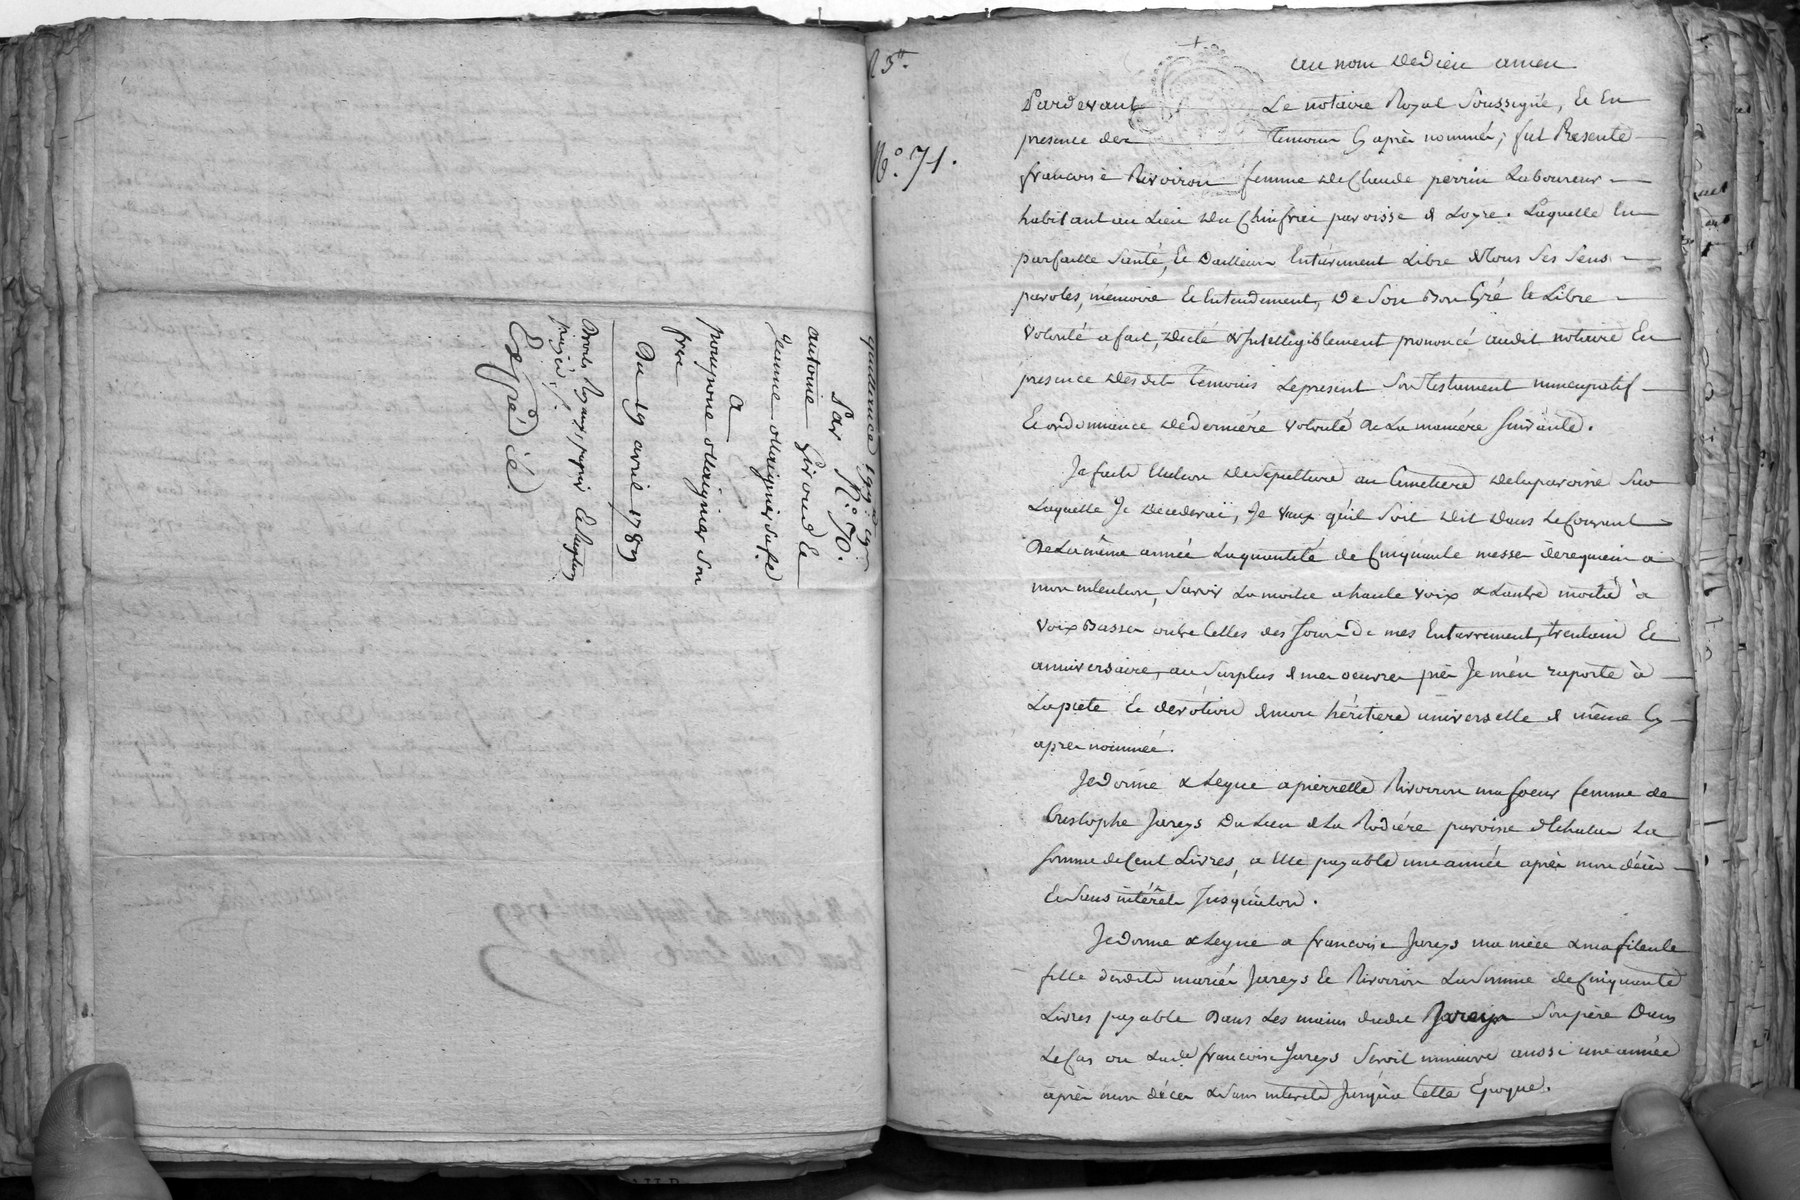 quittance
Par N.° 70.
antoine Giroud Et
jeanne Maignier Sa fe
A
pougnone Maignier Son
frere
Du 19 avril 1789
Expédié
N.° 71.
au nom de Dieu amen
Pardevant Le notaire Royal Soussigné, Et En
presence des temoins Cy après nommés, fut Presente
francoise Rivoiron femme de Claude perrin Laboureur
habitant au Lieu du Chinfrei paroisse de Loyre. Laquelle En
parfaitte Santé, Et Dailleurs Entiérement Libre de tous Ses Sens
paroles, mémoire Et Entendement, De Son Bon Gré Et Libre
volonté a fait, dicté & Intelligiblement prononcé audit notaire En
presence desdits temoins Le present Son Testament nuncupatif
Et ordonnance de derniére volonté De La maniére Suivante.
Je fais Election de Sepulture au Cimetiere de la paroisse Sur
Laquelle Je Decederai, Je veux qu'il Soit dit Dans Le Courant
De La même année La quantité de Cinquante messes de requiem a
mon intention, Savoir La moitié a haute voix & L'autre moitié à
voix Basse outre Celles des Jours de mes Enterrement, trentain Et
anniversaire, au Surplus de mes oeuvres pies Je m'en raporte à
La pieté Et devotion de mon héritiere universelle de même Cy
après nommée.
Je donne & Legue a pierrette Rivoiron ma soeur femme de
Cristophe Jareys Du Lieu de La Rodiére paroisse d'Echalas La
somme de Cent Livres, a Elle payable une année après mon décès
Et Sans intérêts Jusqu'alors.
Je donne & Legue a francoise Jareys ma niéce & ma filleule
fille desdits mariés Jareys Et Rivoiron La Somme de Cinquante
Livres payable Dans Les mains dudit Jareys Son père Dans
Le Cas ou Lade francoise Jareys Seroit mineure aussi une année
après mon décès & Sans interets Jusqu'a Cette Epoque.